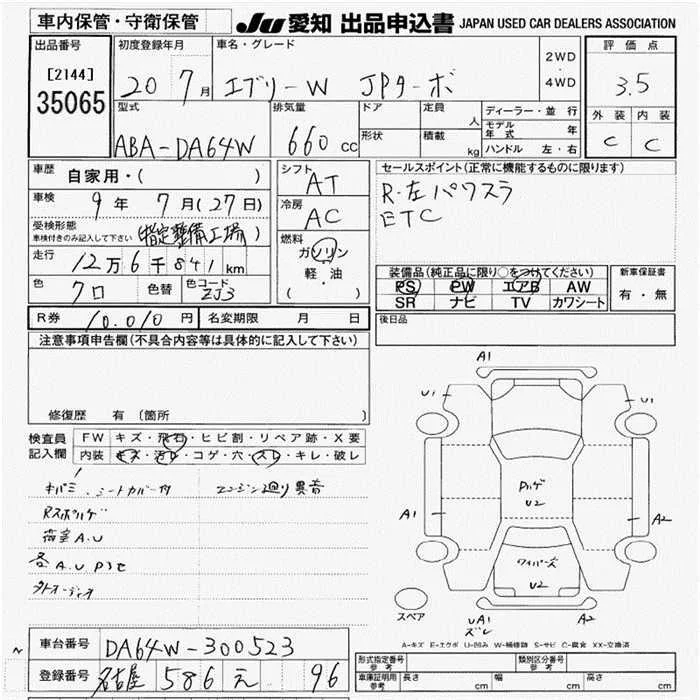 車内保管・守衛保管
JU 愛知 出品申込書 JAPAN USED CAR DEALERS ASSOCIATION
出品番号
[2144]
35065
初度登録年月
20 7月
車名・グレード
エブリーW JPターボ
2WD
・
4WD
評価点
3.5
外装 内装
C C
型式
ABA-DA64W
排気量
660 cc
ドア
形状
定員 人
積載 kg
ディーラー・並行
モデル年式 年
ハンドル 左・右
車歴 自家用・( )
車検 9年 7月(27日)
受検形態
車検付きのみ記入して下さい (指定整備工場)
走行 12万6千841km
色 クロ 色替 色コード ZJ3
シフト
AT
冷房
AC
燃料
ガソリン
・
軽・油
( )
セールスポイント(正常に機能するものに限ります)
R・左パワスラ
ETC
装備品(純正品に限り○をつけてください)
PS PW エアB AW
SR ナビ TV カワシート
新車保証書
有・無
R券 10.010円 名変期限 月 日
後日品
注意事項申告欄(不具合内容等は具体的に記入して下さい)
修復歴 有 (箇所
検査員記入欄
FW キズ・飛石・ヒビ割・リペア跡・X要
内装 キズ・汚レ・コゲ・穴・スレ・キレ・破レ
シートカバー付
エンジン廻り異音
Rスポハゲ
荷室A.U
各A.U
外オーディオ
A1
U1
U1
Rハゲ
U2
A1
A2
ワイパーズレ
U2
スペア
UA1
ズレ
A2
A-キズ E-エクボ U-凹み W-補修跡 S-サビ C-腐食 XX-交換済
車台番号 DA64W-300523
登録番号 名古屋 586 え 96
形式指定番号
参考
類別区分番号
参考
車庫証明用
参考
長さ cm 幅 cm 高さ cm